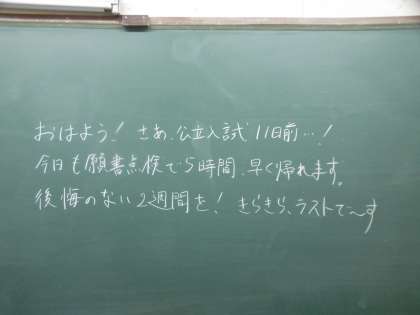 おはよう! さあ、公立入試11日前…!
今日も願書点検で5時間、早く帰れます。
後悔のない2週間を! きらきら、ラストで〜す